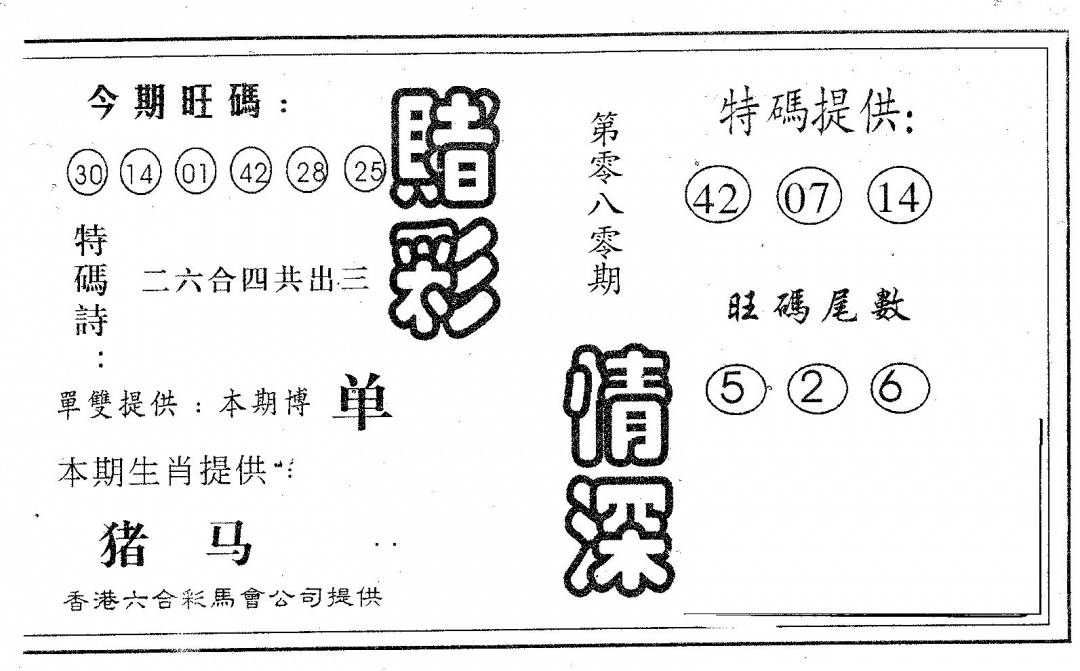 今期旺碼：
30 14 01 42 28 25
特碼詩：
二六合四共出三
單雙提供：本期博 单
本期生肖提供：
猪 马
香港六合彩馬會公司提供
賭彩
情深
第零八零期
特碼提供：
42 07 14
旺碼尾數
5 2 6